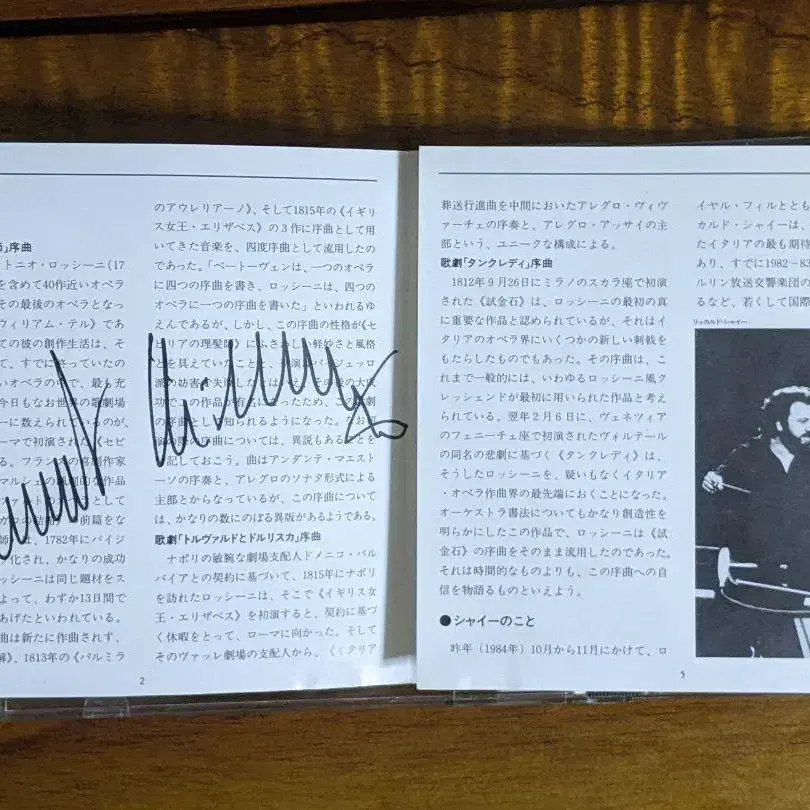 」序曲
トニオ・ロッシーニ(17
を含めて40作近いオペラ
その最後のオペラとなっ
ウィリアム・テル》であ
ての彼の創作生活は、そ
て、すでに終っていたの
いオペラの中で、最も充
今日もなお世界の歌劇場
ーに数えられているのが、
ーマで初演された《セビ
る。フランスの喜劇作家
マルシェの
として
前篇をな
師》は、1782年にパイジ
ラ化され、かなりの成功
ッシーニは同じ題材をス
よって、わずか13日間で
あげたといわれている。
曲は新たに作曲されず、
解》、1813年の《パルミラ
のアウレリアーノ》、そして1815年の《イギリ
ス女王・エリザベス》の3作に序曲として用
いてきた音楽を、四度序曲として流用したの
であった。「ベートーヴェンは、一つのオペラ
に四つの序曲を書き、ロッシーニは、四つの
オペラに一つの序曲を書いた」といわれるゆ
えんであるが、しかし、この序曲の性格が《セ
ビリアの理髪師》にふさわしい軽妙さと風格
とを具えていたことと、初演はパイジェッロ
派の妨害で失敗した
功でこの作品が有名になったため、この歌劇
の序曲として知られるようになった。なお
の序曲については、異説もあることを
記しておこう。曲はアンダンテ・マエスト
ーソの序奏と、アレグロのソナタ形式による
主部とからなっているが、この序曲について
は、かなりの数にのぼる異版があるようである。
歌劇「トルヴァルドとドルリスカ」序曲
ナポリの敏腕な劇場支配人ドメニコ・バル
バイアとの契約に基づいて、1815年にナポリ
を訪れたロッシーニは、そこで《イギリス女
王・エリザベス》を初演すると、契約に基づ
く休暇をとって、ローマに向かった。そして
そのヴァッレ劇場の支配人から。《イタリア
2
葬送行進曲を中間においたアレグロ・ヴィヴ
ァーチェの序奏と、アレグロ・アッサイの主
部という、ユニークな構成による。
歌劇「タンクレディ」序曲
1812年9月26日にミラノのスカラ座で初演
された《試金石》は、ロッシーニの最初の真
に重要な作品と認められているが、それはイ
タリアのオペラ界にいくつかの新しい刺戟を
もたらしたものでもあった。その序曲は、こ
れまで一般的には、いわゆるロッシーニ風ク
レッシェンドが最初に用いられた作品と考え
られている。翌年2月6日に、ヴェネツィア
のフェニーチェ座で初演されたヴォルテール
の同名の悲劇に基づく《タンクレディ》は、
そうしたロッシーニを、疑いもなくイタリア
・オペラ作曲界の最先端におくことになった。
オーケストラ書法についてもかなり創造性を
明らかにしたこの作品で、ロッシーニは《試
金石》の序曲をそのまま流用したのであった。
それは時間的なものよりも、この序曲への自
信を物語るものといえよう。
●シャイーのこと
昨年（1984年）10月から11月にかけて、ロ
5
イヤル・フィルととも
カルド・シャイーは、
たイタリアの最も期待
あり、すでに1982-83
ルリン放送交響楽団の
るなど、若くして国際
リッカルド・シャイー